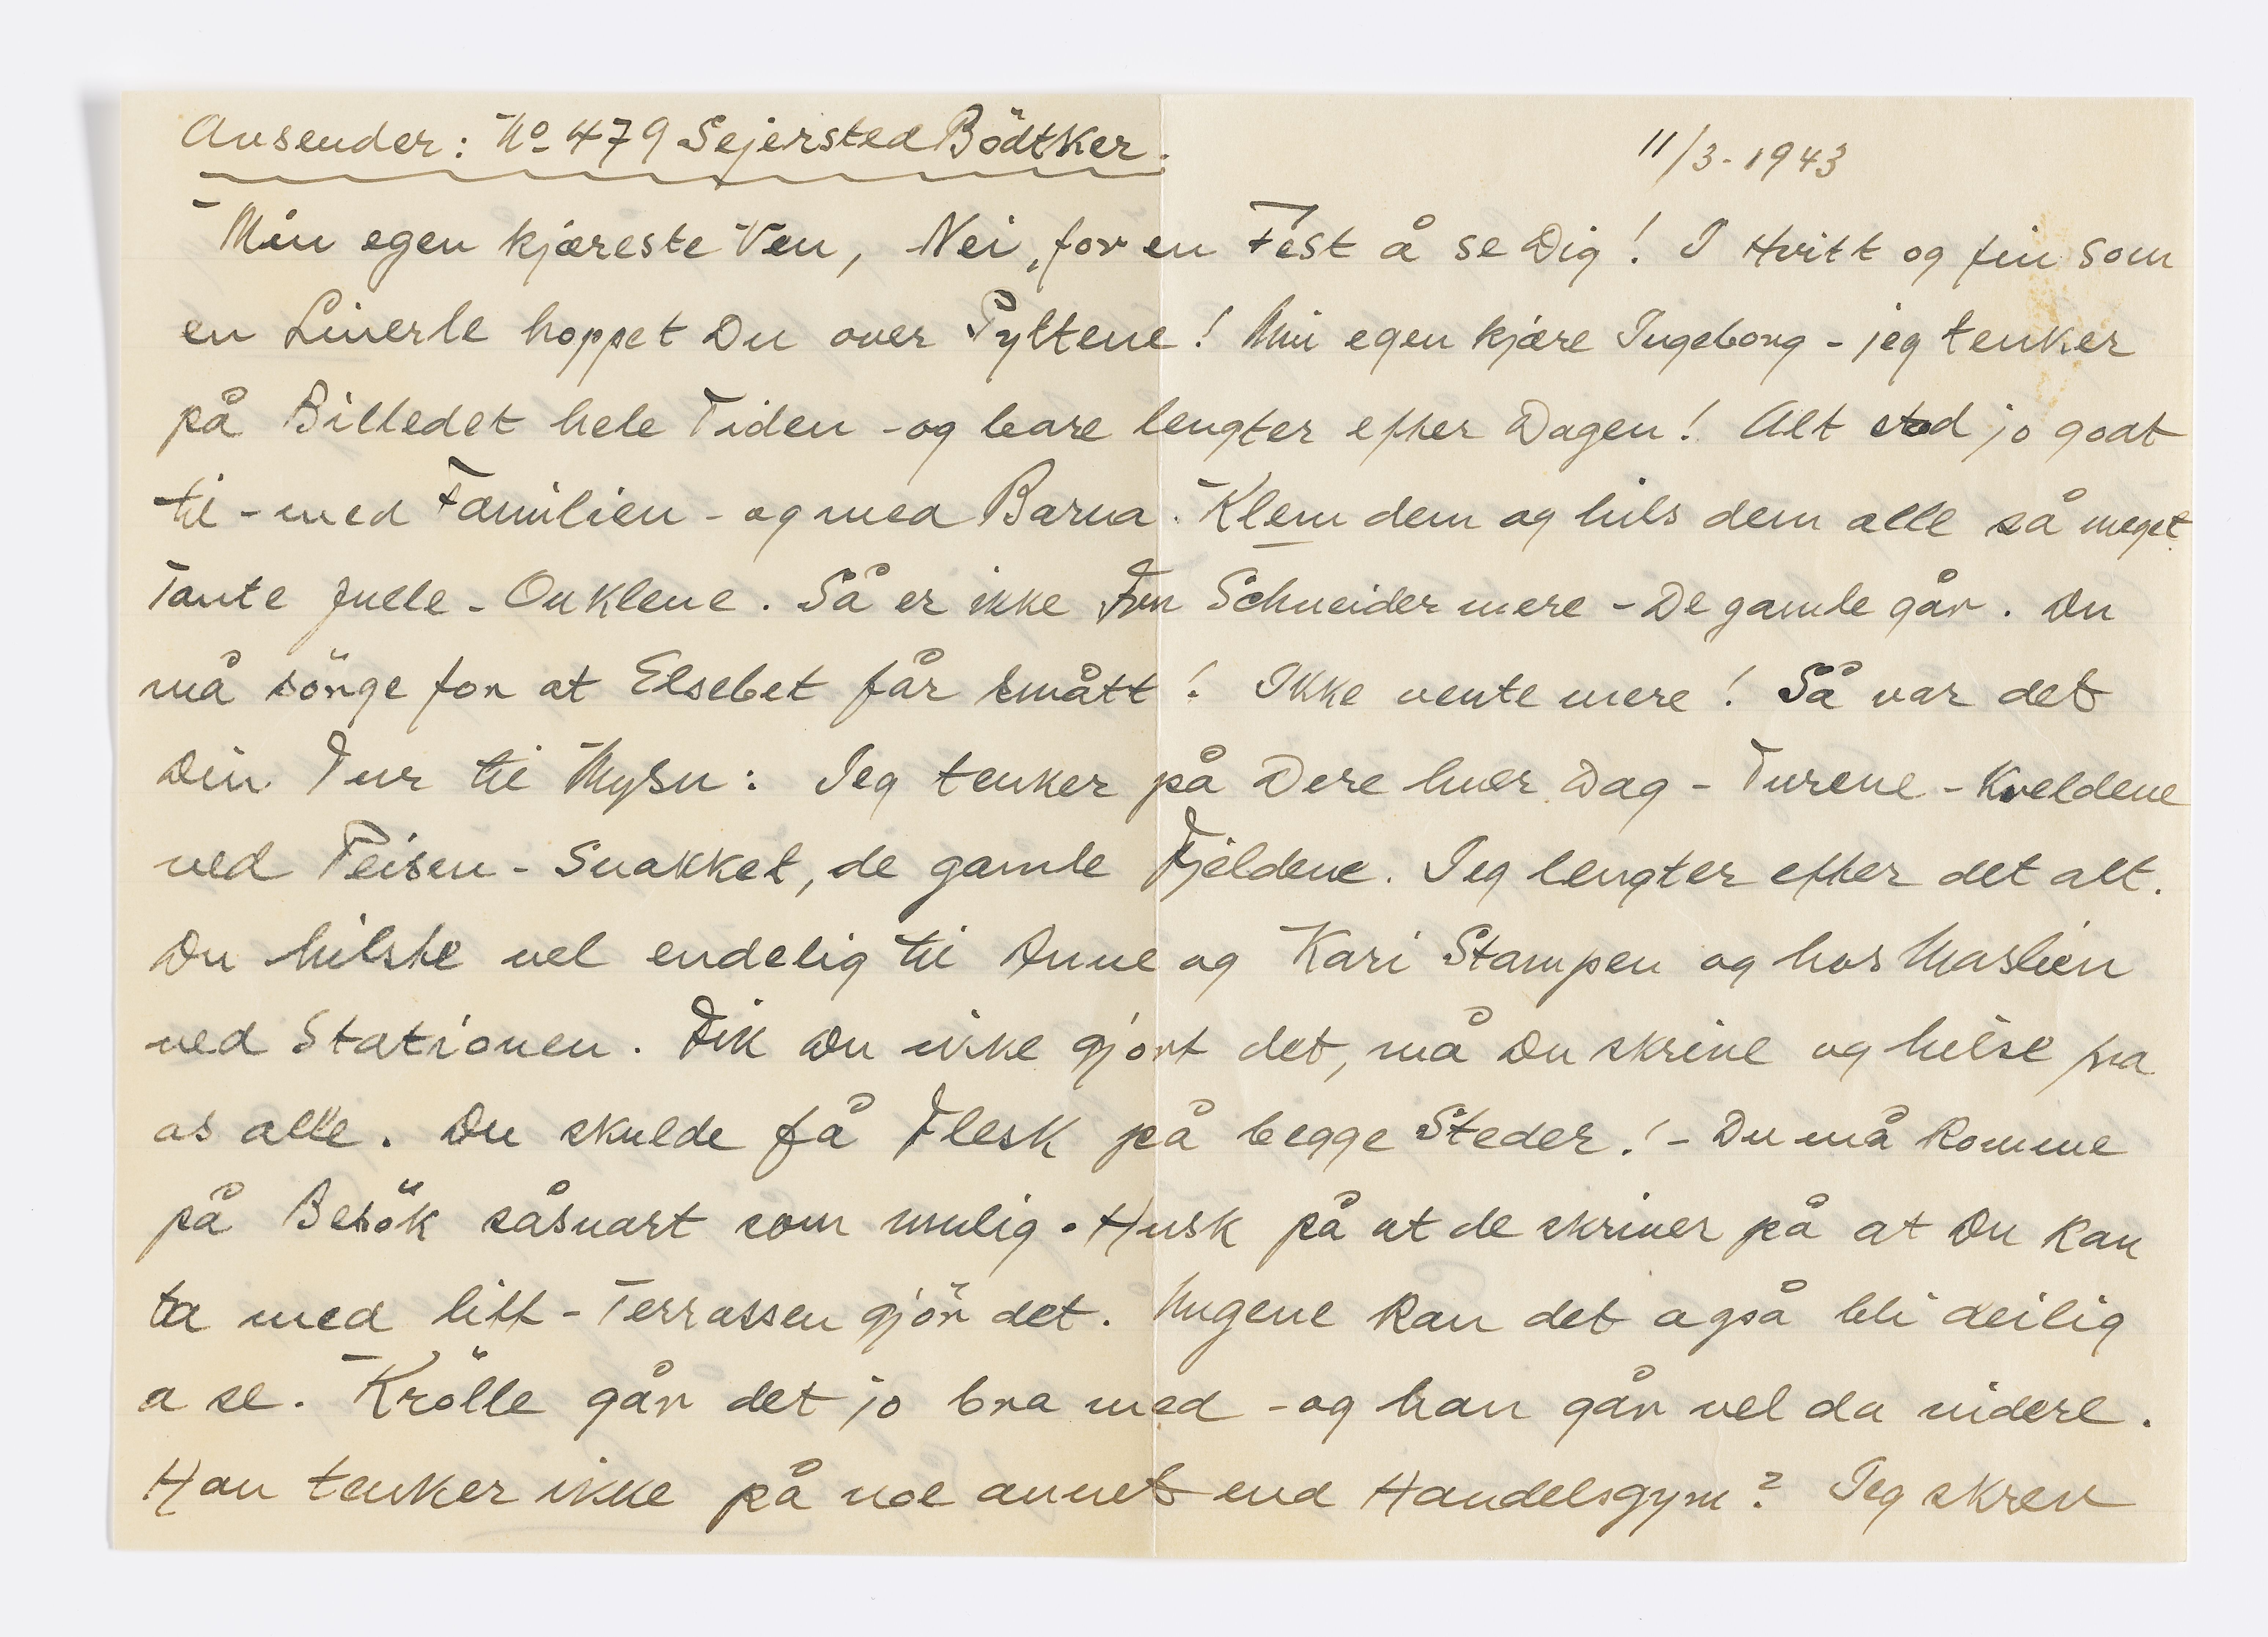 Avsender: No 479 Sejersted Bödtker. 11/3-1943
Min egen kjæreste Ven, Nei, for en Fest å se Dig! I Hvitt og fin som
en Linerle hoppet Du over Pyttene! Min egen kjære Ingeborg - jeg tenker
på Billedet hele Tiden - og bare lengter efter Dagen! Alt stod jo godt
til - med Familien - og med Barna. Klem dem og hils dem alle så meget.
Tante Julle - Onklene. Så er ikke Fru Schneider mere - De gamle går. Du
må sörge for at Elsebet får smått! Ikke vente mere! Så var det
Din Tur til Mysu: Jeg tenker på Dere hver Dag - Turene - Kveldene
ved Peisen - Snakket, de gamle Fjeldene. Jeg lengter efter det alt.
Du hilste vel endelig til Anne og Kari Stampen og hos Maslien
ved Stationen. Fik Du ikke gjort det, må Du skrive og hilse fra
os alle. Du skulde få Flesk på begge Steder! - Du må komme
på Besök såsnart som mulig. Husk på at de skriver på at Du kan
ta med litt - Terrassen gjör det. Ungene kan det også bli deilig
a se. Krölle går det jo bra med - og han går vel da videre.
Han tenker ikke på noe annet end Handelsgym? Jeg skrev